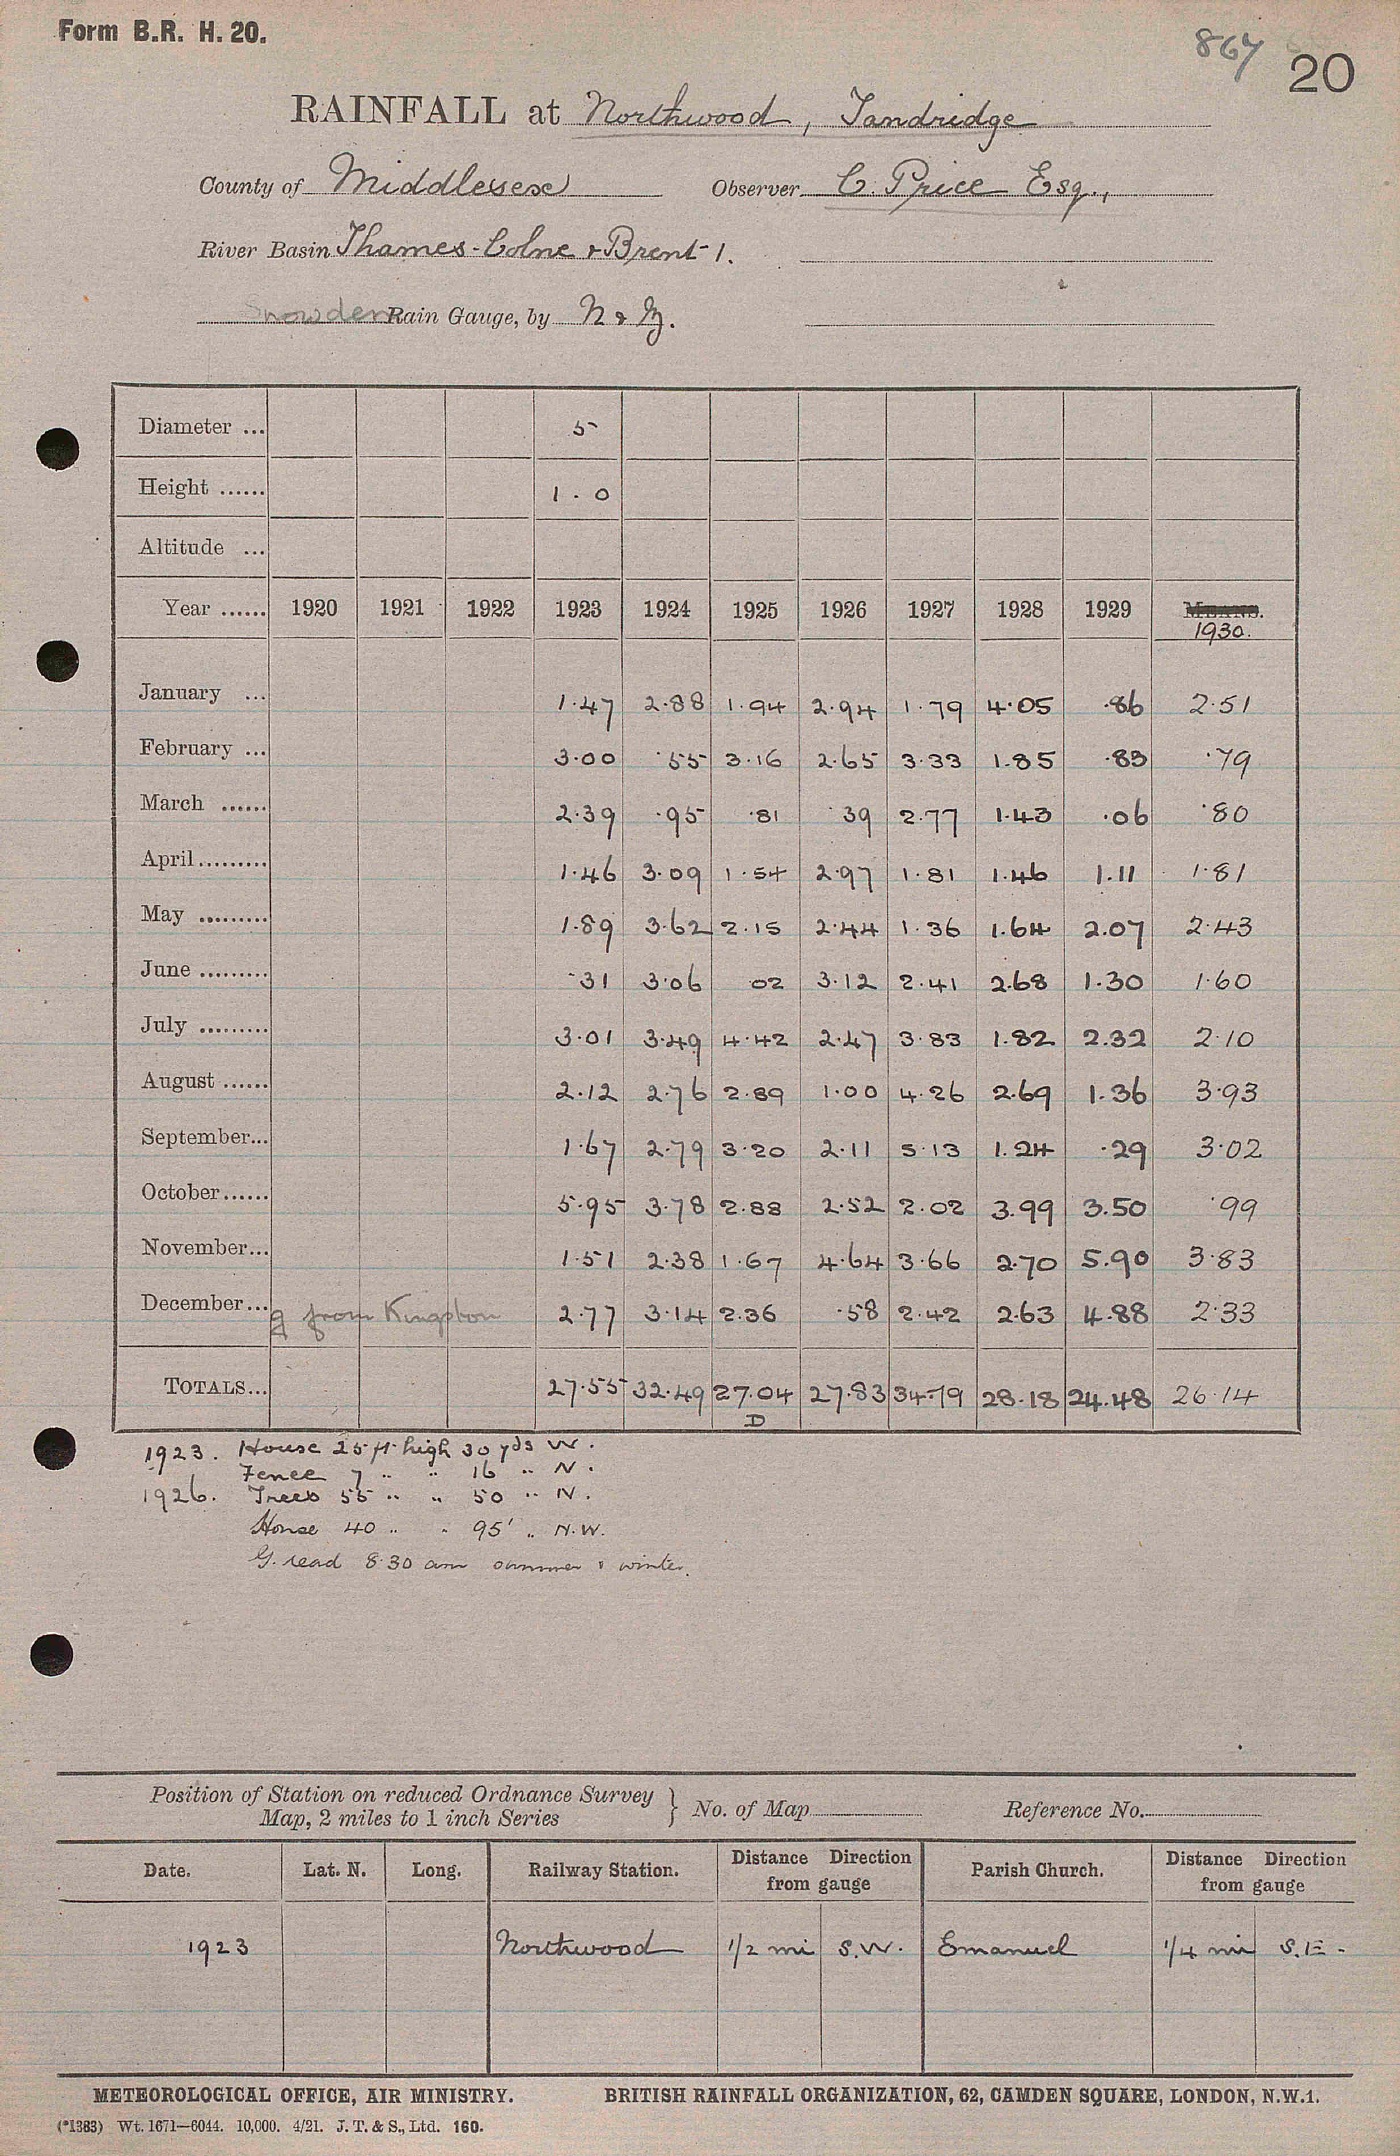 Form B.R. H. 20.
867
20
RAINFALL at Northwood, Tandridge
County of Middlesex Observer C. Price Esq.,
River Basin Thames-Colne & Brent 1.
Snowden Rain Gauge, by N & Z.
Diameter ... 5
Height ...... 1.0
Altitude ...
Year ...... 1920 1921 1922 1923 1924 1925 1926 1927 1928 1929 MEANS. 1930.
January ... 1.47 2.88 1.94 2.94 1.79 4.05 .86 2.51
February ... 3.00 .55 3.16 2.65 3.33 1.85 .83 .79
March ...... 2.39 .95 .81 .39 2.77 1.43 .06 .80
April ......... 1.46 3.09 1.54 2.97 1.81 1.46 1.11 1.81
May ......... 1.89 3.62 2.15 2.44 1.36 1.64 2.07 2.43
June ......... .31 3.06 02 3.12 2.41 2.68 1.30 1.60
July ......... 3.01 3.49 4.42 2.47 3.83 1.82 2.32 2.10
August ...... 2.12 2.76 2.89 1.00 4.26 2.69 1.36 3.93
September... 1.67 2.79 3.20 2.11 5.13 1.24 .29 3.02
October ...... 5.95 3.78 2.88 2.52 2.02 3.99 3.50 .99
November... 1.51 2.38 1.67 4.64 3.66 2.70 5.90 3.83
December... g from Kingston 2.77 3.14 2.36 .58 2.42 2.63 4.88 2.33
TOTALS... 27.55 32.49 27.04 27.83 34.79 28.18 24.48 26.14
D
1923. House 25 ft high 30 yds W.
Fence 7 " " 16 " N.
1926. Trees 55 " " 50 " N.
House 40 " " 95' " N.W.
G. read 8.30 am summer & winter.
Position of Station on reduced Ordnance Survey
Map, 2 miles to 1 inch Series } No. of Map Reference No.
Date. Lat. N. Long. Railway Station. Distance Direction from gauge Parish Church. Distance Direction from gauge
1923 Northwood 1/2 mi S.W. Emanuel 1/4 mi S.E.
METEOROLOGICAL OFFICE, AIR MINISTRY. BRITISH RAINFALL ORGANIZATION, 62, CAMDEN SQUARE, LONDON, N.W.1.
(*1383) Wt. 1671—6044. 10,000. 4/21. J. T. & S., Ltd. 160.